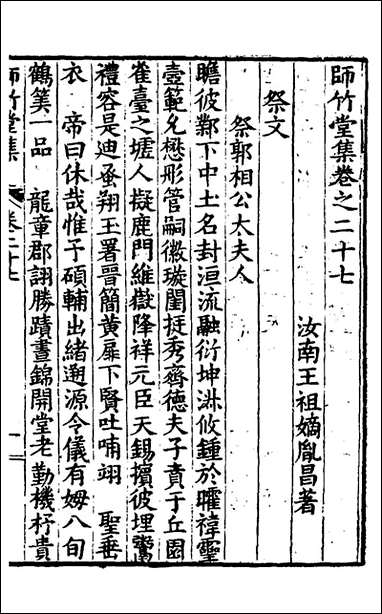 師竹堂集卷之二十七
汝南王祖嫡胤昌著
祭文
祭郭相公太夫人
瞻彼鄴下中土名封洹流融衍坤淋攸鍾於曜禕靈
壼範允懋形管嗣徽璇閨挺秀齊德夫子賁于丘園
雀臺之墟人擬鹿門維嶽降祥元臣天錫擯彼埋鸞
禮容是迪蚤翔玉署晉簡黃扉下賢吐哺翊 聖垂
衣 帝曰休哉惟予碩輔出緒遡源令儀有姆八旬
鶴筭一品 龍章郡詡勝蹟晝錦開堂老勤機杼貴
師竹堂集 卷二十七 一